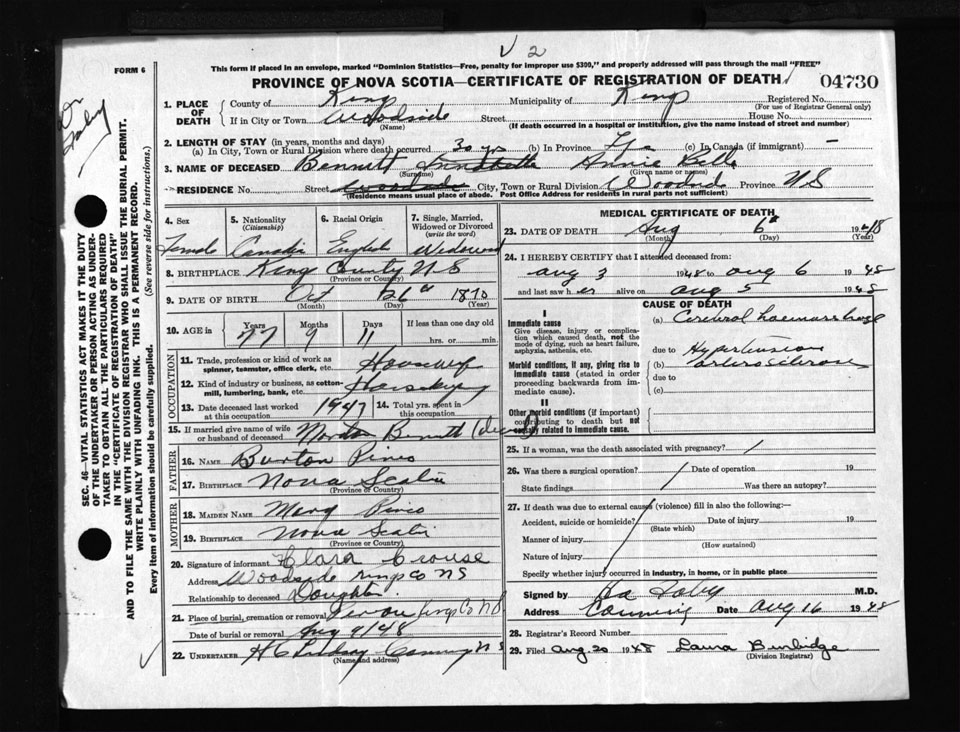 √ 2
This form if placed in an envelope, marked "Dominion Statistics—Free, penalty for improper use $300," and properly addressed will pass through the mail "FREE"
FORM 6
PROVINCE OF NOVA SCOTIA—CERTIFICATE OF REGISTRATION OF DEATH
04730
1. PLACE OF DEATH
County of Kings Municipality of Kings Registered No.
(For use of Registrar General only)
If in City or Town Woodside Street House No.
(Name) (If death occurred in a hospital or institution, give the name instead of street and number)
2. LENGTH OF STAY (in years, months and days)
(a) In City, Town or Rural Division where death occurred 30 yrs (b) In Province Life (c) In Canada (if immigrant) —
3. NAME OF DECEASED Bennett Annie Belle
(Surname) (Given name or names)
RESIDENCE No. Street Woodside City, Town or Rural Division Woodside Province NS
(Residence means usual place of abode. Post Office Address for residents in rural parts not sufficient)
4. Sex 5. Nationality 6. Racial Origin 7. Single, Married, Widowed or Divorced
(Citizenship) (write the word)
Female Canadian English Widowed
8. BIRTHPLACE Kings County NS
(Province or Country)
9. DATE OF BIRTH Oct 26th 1870
(Month) (Day) (Year)
10. AGE in Years Months Days If less than one day old
77 9 11 hrs. or min.
OCCUPATION
11. Trade, profession or kind of work as spinner, teamster, office clerk, etc. Housewife
12. Kind of industry or business, as cotton-mill, lumbering, bank, etc. Housekeeping
13. Date deceased last worked at this occupation 1947 14. Total yrs. spent in this occupation
15. If married give name of wife or husband of deceased Morton Bennett (decd)
FATHER
16. NAME Burton Pineo
17. BIRTHPLACE Nova Scotia
(Province or Country)
MOTHER
18. MAIDEN NAME Mary Pineo
19. BIRTHPLACE Nova Scotia
(Province or Country)
20. Signature of informant Clara Crouse
Address Woodside Kings Co NS
Relationship to deceased Daughter
21. Place of burial, cremation or removal Kings Co NS
Date of burial or removal Aug 9/48
22. UNDERTAKER H C Lindsay Canning NS
(Name and address)
MEDICAL CERTIFICATE OF DEATH
23. DATE OF DEATH Aug 6th 1948
(Month) (Day)
24. I HEREBY CERTIFY that I attended deceased from:
Aug 3 1948 to Aug 6 1948
and last saw her alive on Aug 5 1948
CAUSE OF DEATH
I
Immediate cause
Give disease, injury or complication which caused death, not the mode of dying, such as heart failure, asphyxia, asthenia, etc.
(a) Cerebral haemorrhage
due to Hypertension
Morbid conditions, if any, giving rise to immediate cause (stated in order proceeding backwards from immediate cause).
(b) arteriosclerosis
due to
(c)
II
Other morbid conditions (if important) contributing to death but not causally related to immediate cause.
25. If a woman, was the death associated with pregnancy? /
26. Was there a surgical operation? Date of operation 19
State findings Was there an autopsy?
27. If death was due to external causes (violence) fill in also the following:—
Accident, suicide or homicide? Date of injury 19
(State which)
Manner of injury
(How sustained)
Nature of injury
Specify whether injury occurred in industry, in home, or in public place
Signed by M.D.
Address Canning Date Aug 16 1948
28. Registrar's Record Number
29. Filed Aug. 20 1948 Laura Burbidge
(Division Registrar)
SEC. 46—VITAL STATISTICS ACT MAKES IT THE DUTY OF THE UNDERTAKER OR PERSON ACTING AS UNDERTAKER TO OBTAIN ALL THE PARTICULARS REQUIRED IN THE "CERTIFICATE OF REGISTRATION OF DEATH" AND TO FILE THE SAME WITH THE DIVISION REGISTRAR WHO SHALL ISSUE THE BURIAL PERMIT.
WRITE PLAINLY WITH UNFADING INK. THIS IS A PERMANENT RECORD.
Every item of information should be carefully supplied. (See reverse side for instructions.)